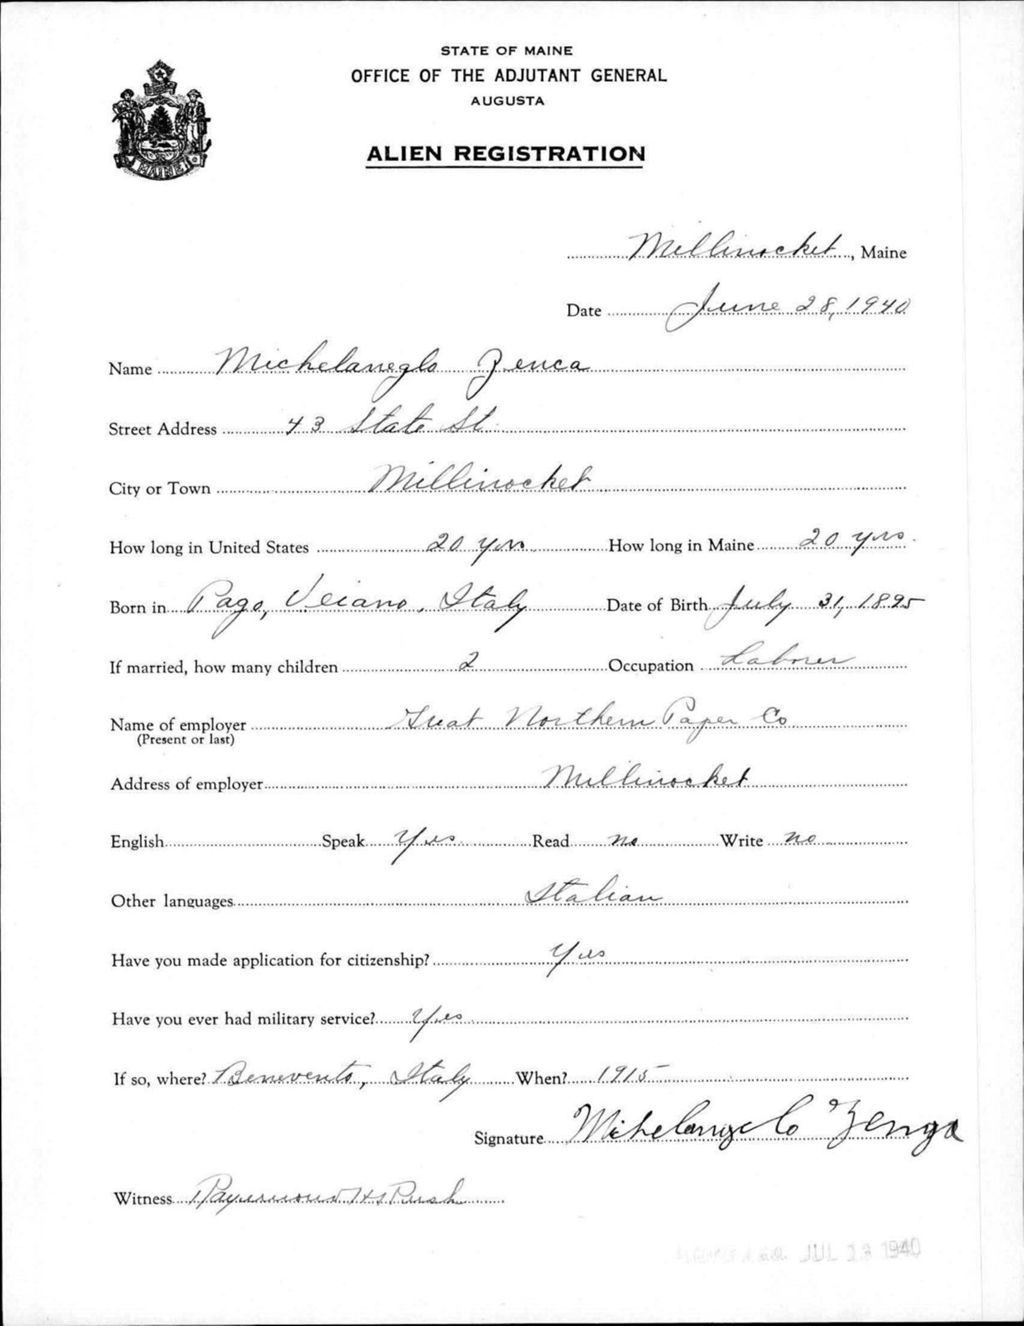 STATE OF MAINE
OFFICE OF THE ADJUTANT GENERAL
AUGUSTA
ALIEN REGISTRATION
MAINE
Millinocket, Maine
Date June 28, 1940
Name Michelaneglo Zenca
Street Address 43 State St
City or Town Millinocket
How long in United States 20 yrs How long in Maine 20 yrs.
Born in Pago, Veiano, Italy Date of Birth July 31, 1895
If married, how many children 2 Occupation Laborer
Name of employer Great Northern Paper Co
(Present or last)
Address of employer Millinocket
English Speak Yes Read no Write no
Other languages Italian
Have you made application for citizenship? Yes
Have you ever had military service? Yes
If so, where? Benevento, Italy When? 1915
Signature Mihelangelo Zenga
Witness Raymond H Rush
JUL 13 1940